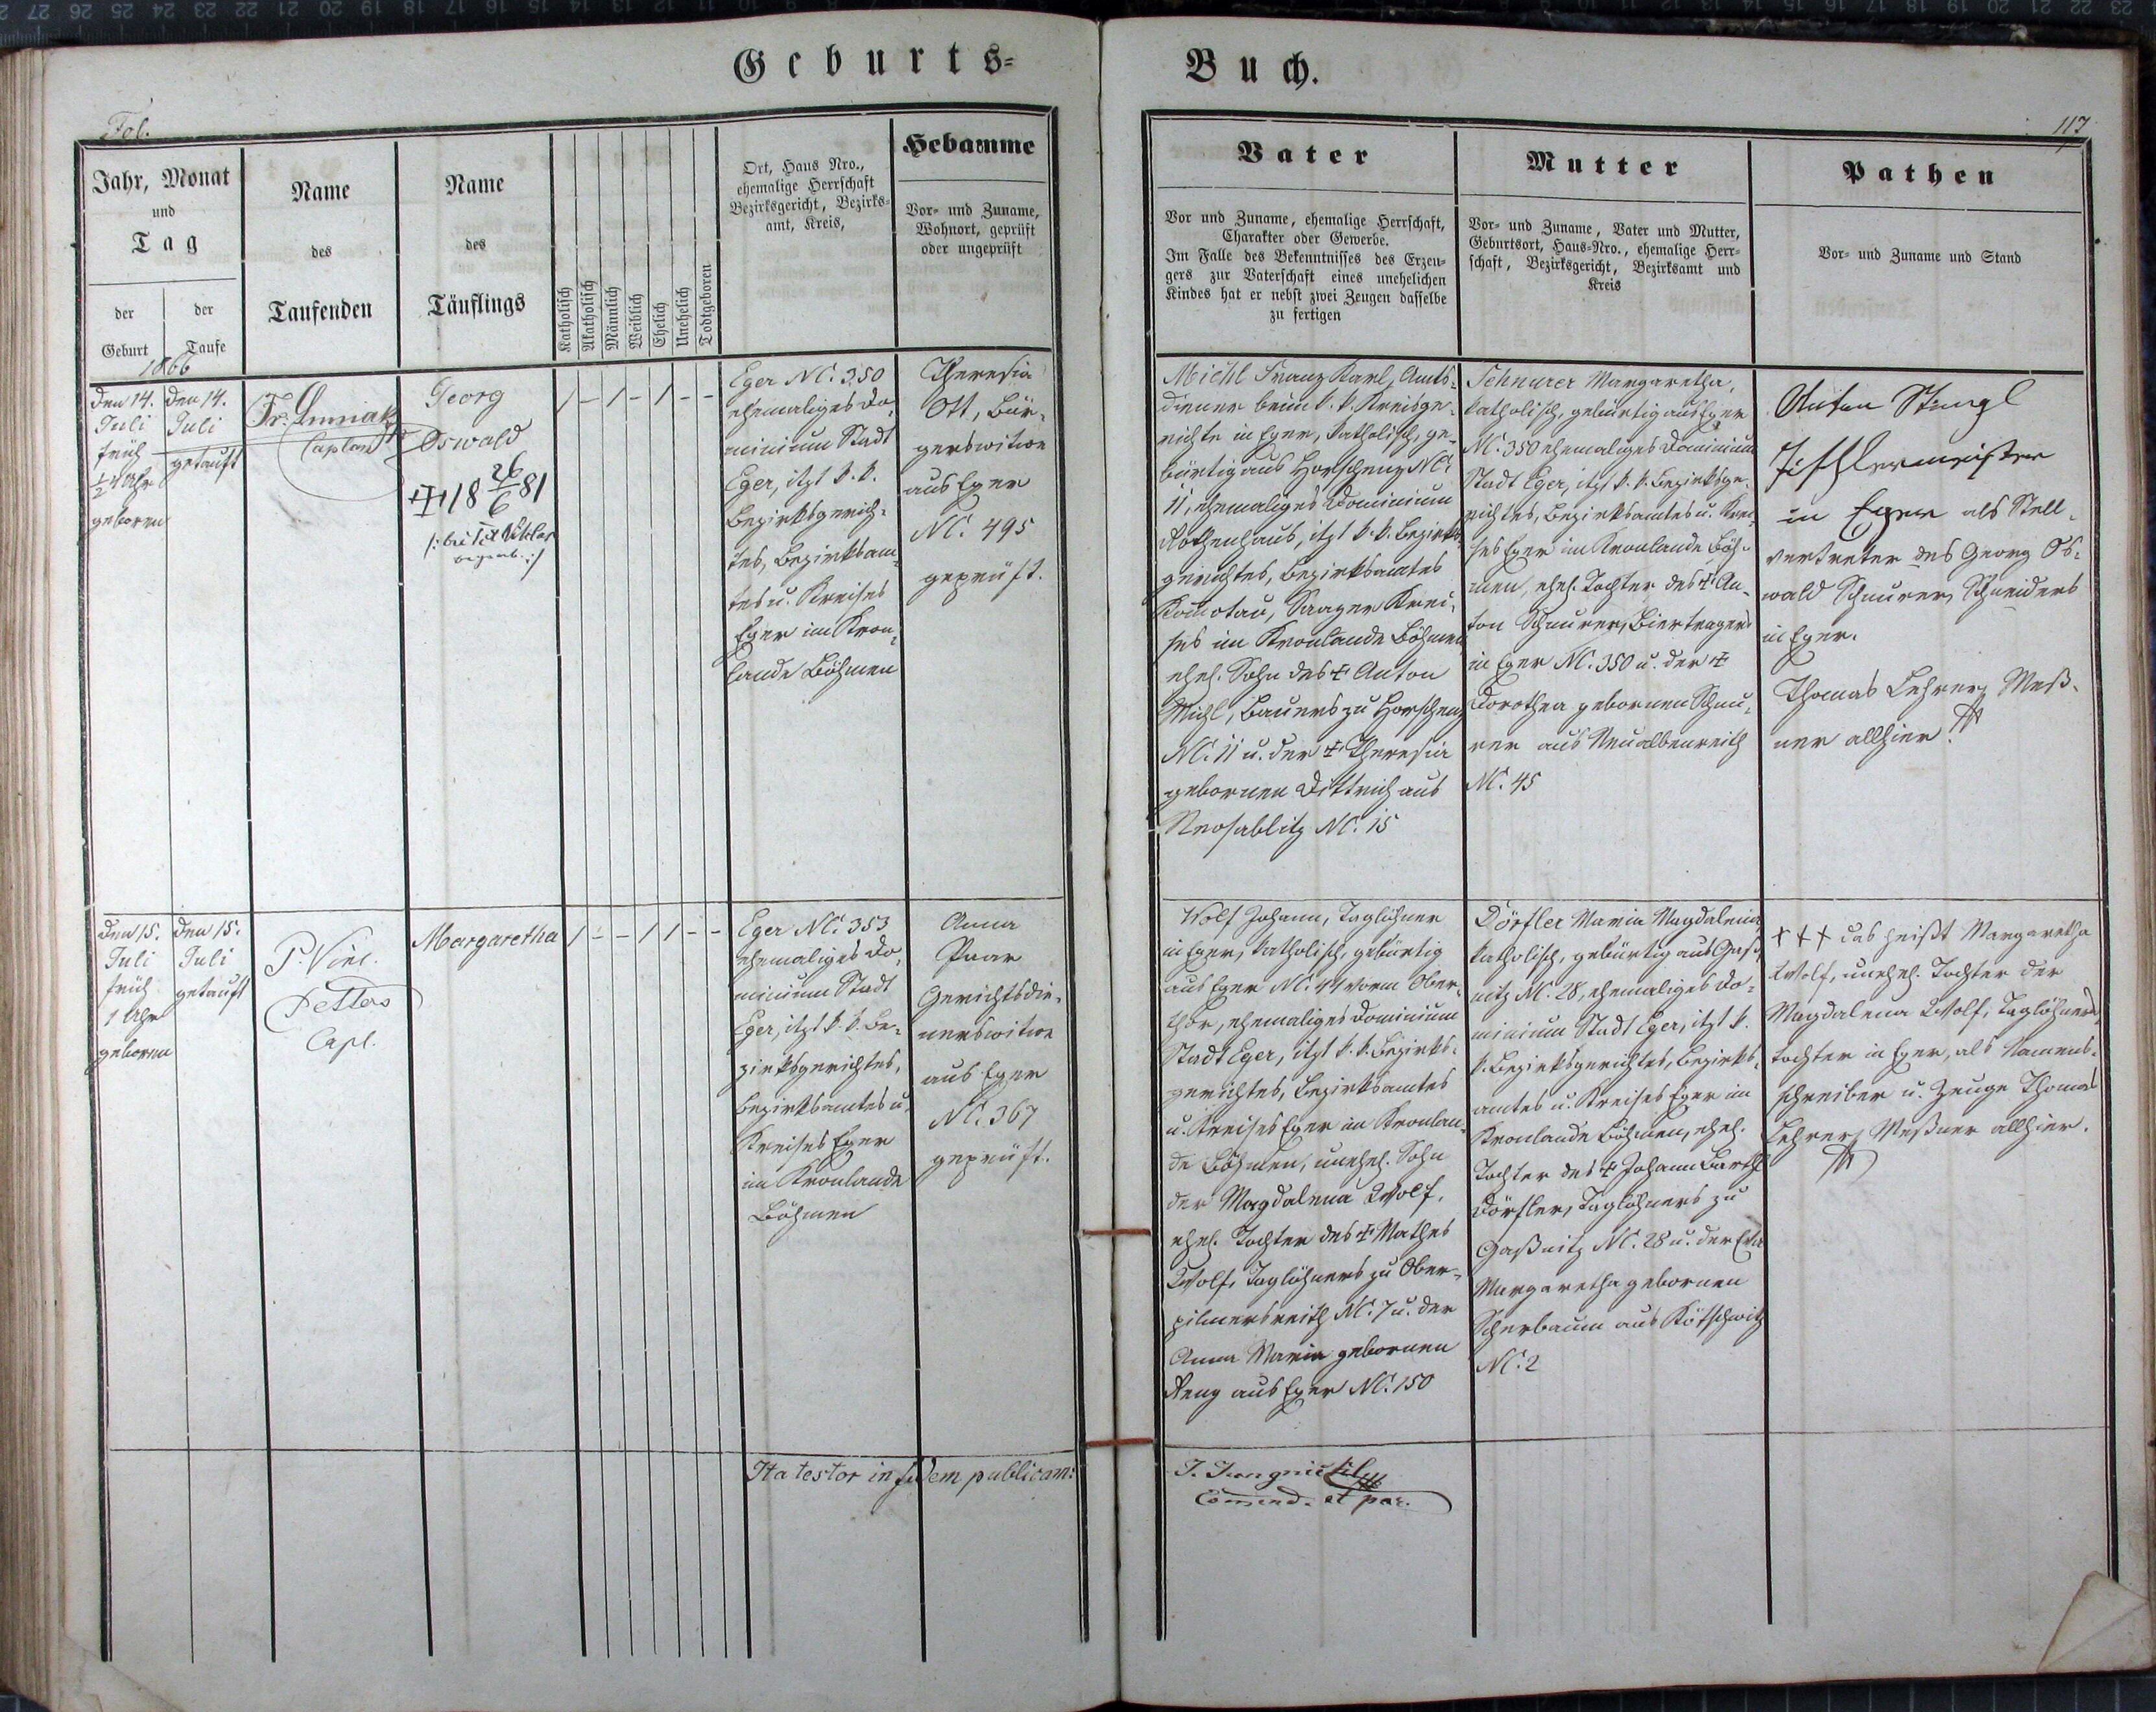 Geburts-
Buch.
Fol.
117
Jahr, Monat
und
Tag
der
Geburt
der
Taufe
Name
des
Taufenden
Name
des
Täuflings
Katholisch
Akatholisch
Männlich
Weiblich
Ehelich
Unehelich
Todtgeboren
Ort, Haus Nro.,
ehemalige Herrschaft
Bezirksgericht, Bezirks-
amt, Kreis,
Hebamme
Vor- und Zuname,
Wohnort, geprüft
oder ungeprüft
Vater
Vor und Zuname, ehemalige Herrschaft,
Charakter oder Gewerbe.
Im Falle des Bekenntnisses des Erzeu-
gers zur Vaterschaft eines unehelichen
Kindes hat er nebst zwei Zeugen dasselbe
zu fertigen
Mutter
Vor- und Zuname, Vater und Mutter,
Geburtsort, Haus-Nro., ehemalige Herr-
schaft, Bezirksgericht, Bezirksamt und
Kreis
Pathen
Vor- und Zuname und Stand
1866
den 14.
Juli
früh
½ 4 Uhr
geboren
den 14.
Juli
getauft
Caplan
Georg
Oswald
18 26/6 81
/ – / – / – –
Eger NC. 350
ehemaliges Do-
minium Stadt
Eger, itzt k. k.
Bezirksgerich-
tes, Bezirksam-
tes u. Kreises
Eger im Kron-
lande Böhmen
Theresia
Ott, Bür-
gerswitwe
aus Eger
NC. 495
geprüft.
Michl Franz Karl, Amts-
diener beim k. k. Kreisge-
richte in Eger, katholisch, ge-
bürtig aus Horschenz NC.
11, ehemaliges Dominium
Rothenhaus, itzt k. k. Bezirks-
gerichtes, Bezirksamtes
Komotau, Saazer Krei-
ses im Kronlande Böhmen
ehel. Sohn des † Anton
Michl, Bauers zu Horschenz
NC. 11 u. der † Theresia
gebornen Dittrich aus
Neosablitz NC. 15
Schnurer Margaretha,
katholisch, gebürtig aus Eger
NC. 350 ehemaliges Dominium
Stadt Eger, itzt k. k. Bezirksge-
richtes, Bezirksamtes u. Krei-
ses Eger im Kronlande Böh-
men, ehel. Tochter des † An-
ton Schnurer, Biertragers
in Eger NC. 350 u. der †
Dorothea gebornen Schnu-
rer aus Neualbenreith
NC. 45
Anton Stingl
Tischlermeister
in Eger als Stell-
vertreter des Georg Os-
wald Schnurer, Schneiders
in Eger.
Thomas Lehrer, Meß-
ner allhier.
den 15.
Juli
früh
1 Uhr
geboren
den 15.
Juli
getauft
P. Vinc.
Petters
Capl.
Margaretha
/ – – / / – –
Eger NC. 353
ehemaliges Do-
minium Stadt
Eger, itzt k. k. Be-
zirksgerichtes,
Bezirksamtes u.
Kreises Eger
im Kronlande
Böhmen
Anna
Gerichtsdie-
nerswitwe
aus Eger
NC. 367
geprüft.
Wolf Johann, Taglöhner
in Eger, katholisch, gebürtig
aus Eger NC. 44 vorm Ober-
thor, ehemaliges Dominium
Stadt Eger, itzt k. k. Bezirks-
gerichtes, Bezirksamtes
u. Kreises Eger im Kronlan-
de Böhmen, unehel. Sohn
der Magdalena Wolf,
ehel. Tochter des † Mathes
Wolf, Taglöhners zu Ober-
pilmersreith NC. 7 u. der
Anna Maria gebornen
aus Eger NC. 150
Dörfler Maria Magdalena
katholisch, gebürtig aus Gaß-
nitz NC. 28, ehemaliges Do-
minium Stadt Eger, itzt k.
k. Bezirksgerichtes, Bezirks-
amtes u. Kreises Eger im
Kronlande Böhmen, ehel.
Tochter des † Johann Barth
Dörfler, Taglöhners zu
Gaßnitz NC. 28 u. der Eva
Margaretha gebornen
Scherbaum aus Kötschwitz
NC. 2
+ + + das heißt Margaretha
Wolf, unehel. Tochter der
Magdalena Wolf, Taglöhners-
tochter in Eger, als Namens-
schreiber u. Zeuge Thomas
Lehrer, Meßner allhier.
Ita testor in fidem publicam:
Comend. et par.